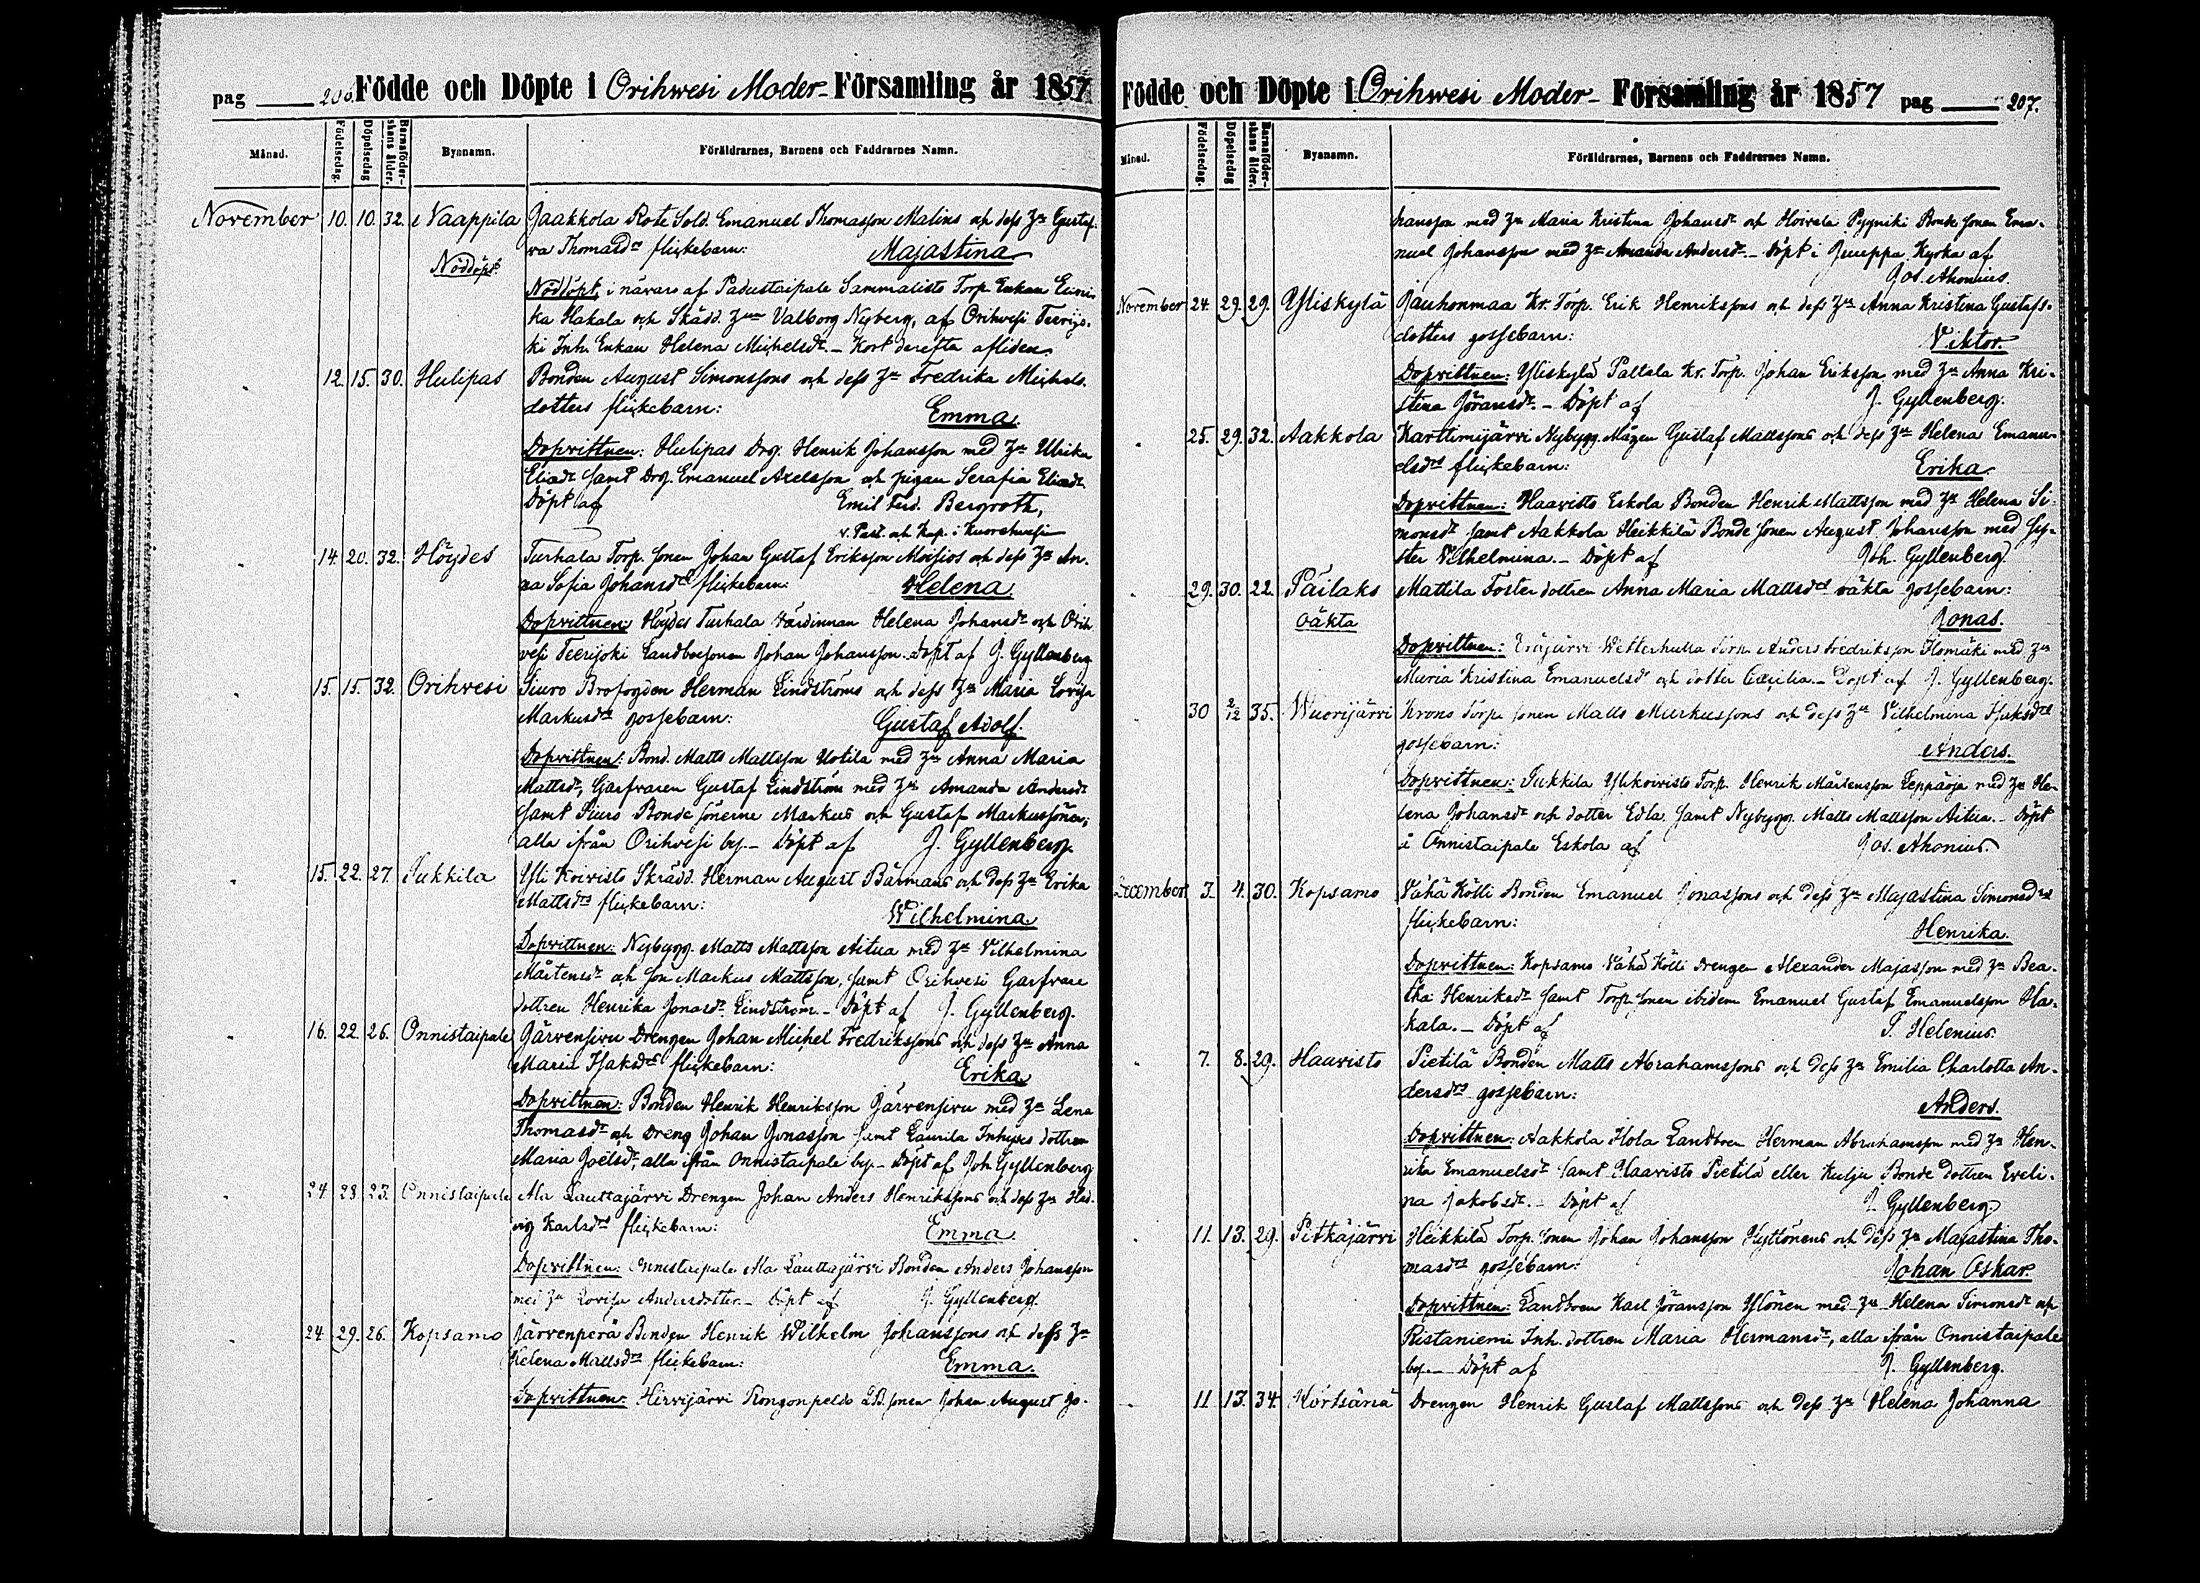 pag 206. Födde och Döpte i Orihwesi Moder- Församling år 1857
Månad. Födelsedag. Döpelsedag Barnaföderskans ålder. Bysnamn. Föräldrarnes, Barnens och Faddrarnes Namn.
November 10. 10. 32. Naappila Jaakkola Rote Sold. Emanuel Thomasson Malins och dess Hu Gustaf-
va Thomasdrs flickebarn: Majastina
Nöddöpt.
Nöddöpt, i närvaro af Padustaipale Sammalisto Torp. Enkan
ka Hakala och Skådd. Valborg Nyberg, af Orihvesi Teerijo-
ki Inh. Enkan Helena Michelsdr. - Kort derefter afliden.
12. 15. 30. Hulipas Bonden August Simonssons och dess Hu Fredrika Michels-
dotters flickebarn: Emma.
Dopvittnen: Hulipas Drg. Henrik Johansson med Hu Ulrika
Eliadr samt Drg. Emanuel Axelsson och pigan Serafia Eliadr
Döpt af Emil Ferd. Bergroth,
v. Past. och Kap. i Kuorehvesi
14. 20. 32. Höydes Turhala Torp. sonen Johan Gustaf Eriksson Moisios och dess Hu An-
na Sofia Johansdrs flickebarn: Helena.
Dopvittnen: Höydes Turhala värdinnan Helena Johansdr och Orih-
vesi Teerijoki Landbosonen Johan Johansson. Döpt af J. Gyllenberg
15. 15. 32. Orihvesi Siuro Brofogden Herman Lindströms och dess Hu Maria Lovisa
Markusdrs gossebarn: Gustaf Adolf.
Dopvittnen: Bond. Matts Mattsson Uotila med Hu Anna Maria
Mattsdr, Garfvaren Gustaf Lindström med Hu Amanda Andersdr
samt Siuro Bondesönerne Markus och Gustaf Markussöner,
alla ifrån Orihvesi by. - Döpt af J. Gyllenberg.
15. 22. 27. Pukkila Yli Koivisto Skrädd. Herman August Bärmans och dess Hu Erika
Mattsdrs flickebarn: Wilhelmina.
Dopvittnen: Nybygg. Matts Mattsson Aitua med Hu Vilhelmina
Mårtensdr och son Markus Mattsson, samt Orihvesi Garfvare
dottren Henrika Jonasdr Lindström. - Döpt af J. Gyllenberg.
16. 22. 26. Onnistaipale Järvensivu Drengen Johan Michel Fredrikssons och dess Hu Anna
Maria Isaksdrs flickebarn: Erika
Dopvittnen: Bonden Henrik Henriksson Järvensivu med Hu Lena
Thomasdr och Dreng Johan Jonasson samt Laurila Inhyses dottren
Maria Joelsdr, alla ifrån Onnistaipale by. - Döpt af Joh. Gyllenberg
24. 28. 23. Onnistaipale Ala Lauttajärvi Drengen Johan Anders Henrikssons och dess Hu Hed-
vig Karlsdrs flickebarn: Emma.
Dopvittnen: Onnistaipale Ala Lauttajärvi Bonden Anders Johansson
med Hu Lovisa Andersdotter. - Döpt af J. Gyllenberg.
24. 29. 26. Kopsamo Järvenperä Bonden Henrik Wilhelm Johanssons och dess Hu
Helena Mattsdrs flickebarn: Emma.
Dopvittnen: Hirvijärvi Rongonpeldo LB. sonen Johan August Jo-
Födde och Döpte i Orihwesi Moder- Församling år 1857 pag 207.
Månad. Födelsedag. Döpelsedag Barnaföderskans ålder. Bysnamn. Föräldrarnes, Barnens och Faddrarnes Namn.
hansson med Hu Maria Kristina Johansdr och Hoivala Pyyniki Bondesonen Ema-
nuel Johansson med Hu Amanda Andersdr. - Döpt i Jueuppa Kyrka af
Jos. Ahonius.
November 24. 29. 29. Yliskylä Pauhonmaa Kr. Torp. Erik Henrikssons och dess Hu Anna Kristina Gustafs-
dotters gossebarn: Viktor.
Dopvittnen: Yliskylä Paltala Kr. Torp. Johan Eriksson med Hu Anna Kri-
stina Göransdr. - Döpt af J. Gyllenberg.
25. 29. 32. Aakkola Karttimijärvi Nybygg. Mågen Gustaf Mattssons och dess Hu Helena Emanu-
elsdrs flickebarn: Erika
Dopvittnen: Haavisto Eskola Bonden Henrik Mattsson med Hu Helena Si-
monsdr samt Aakkola Heikkilä Bondesonen August Johansson med sy-
ster Vilhelmina. - Döpt af Joh. Gyllenberg.
29. 30. 22. Päilaks Mattila Fosterdottren Anna Maria Mattsdrs oäkta gossebarn:
oäkta Jonas.
Dopvittnen: Eräjärvi Vetterhulla Anders Fredriksson Homäki med Hu
Maria Kristina Emanuelsdr och dotter Cecilia. - Döpt af J. Gyllenberg.
30 2/12 35. Wuorijärvi Krono Torp. sonen Matts Markussons och dess Hu Vilhelmina Isaksdrs
gossebarn: Anders.
Dopvittnen: Pukkila Ylikoivisto Torp. Henrik Mårtensson Leppäoja med Hu He-
lena Johansdr och dotter Edla samt Nybygg. Matts Mattsson Aitua. - Döpt
i Onnistaipale Eskola af Jos. Ahonius.
December 3. 4. 30. Kopsamo Vähä Kölli Bonden Emanuel Jonassons och dess Hu Majastina Simonsdrs
flickebarn: Henrika.
Dopvittnen: Kopsamo Vähä Kölli drengen Alexander Majasson med Hu Bea-
tha Henriksdr samt Torp. sonen ibidem Emanuel Gustaf Emanuelsson Ha-
kala. - Döpt af Helenius.
7. 8. 29. Haavisto Pietilä Bonden Matts Abrahamssons och dess Hu Emilia Charlotta An-
dersdrs gossebarn: Anders.
Dopvittnen: Aakkola Hola Landbon Herman Abrahamsson med Hu Hen-
rika Emanuelsdr samt Haavisto Pietilä eller Kulju Bonde dottren Eveli-
na Jakobsdr. - Döpt af J. Gyllenberg.
11. 13. 29. Pitkäjärvi Heikkilä Torp. sonen Johan Johansson Hyttönens och dess Hu Majastina Tho-
masdrs gossebarn: Johan Oskar.
Dopvittnen: Landbon Karl Göransson Ylönen med Hu Helena Simonsdr och
Ristaniemi Inh. dottren Maria Hermansdr, alla ifrån Onnistaipale
by. - Döpt af J. Gyllenberg.
11. 13. 34. Körtsärä Drengen Henrik Gustaf Mattssons och dess Hu Helena Johanna